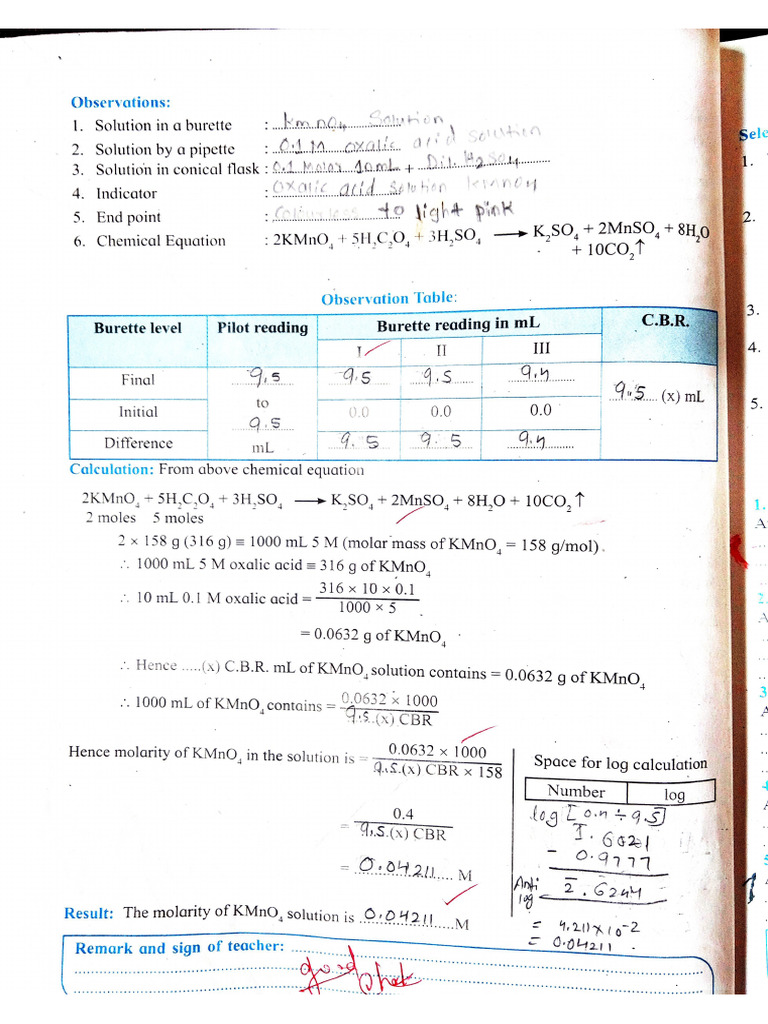 Observations:
1. Solution in a burette : kmno4 Solution
2. Solution by a pipette : 0.1 M oxalic acid solution
3. Solution in conical flask : 0.1 Molar 10mL + Dil. H2SO4
4. Indicator : Oxalic acid Solution kmno4
5. End point : Colourless to light pink
6. Chemical Equation : 2KMnO4 + 5H2C2O4 + 3H2SO4 ⟶ K2SO4 + 2MnSO4 + 8H2O
+ 10CO2↑
Observation Table:
Burette level Pilot reading Burette reading in mL C.B.R.
I II III
Final 9.5 9.5 9.5 9.4
9.5 (x) mL
Initial to 0.0 0.0 0.0
9.5
Difference mL 9.5 9.5 9.4
Calculation: From above chemical equation
2KMnO4 + 5H2C2O4 + 3H2SO4 ⟶ K2SO4 + 2MnSO4 + 8H2O + 10CO2↑
2 moles 5 moles
2 × 158 g (316 g) ≡ 1000 mL 5 M (molar mass of KMnO4 = 158 g/mol).
∴ 1000 mL 5 M oxalic acid ≡ 316 g of KMnO4
∴ 10 mL 0.1 M oxalic acid = 316 × 10 × 0.1 / 1000 × 5
= 0.0632 g of KMnO4
∴ Hence .....(x) C.B.R. mL of KMnO4 solution contains = 0.0632 g of KMnO4
∴ 1000 mL of KMnO4 contains = 0.0632 × 1000 / 9.5.(x) CBR
Hence molarity of KMnO4 in the solution is = 0.0632 × 1000 / 9.5.(x) CBR × 158
= 0.4 / 9.5.(x) CBR
= 0.04211 M
Space for log calculation
Number log
log [0.4 ÷ 9.5]
1̄.6021
- 0.9777
Anti log 2̄.6244
= 4.211×10-2
= 0.04211
Result: The molarity of KMnO4 solution is 0.04211 M
Remark and sign of teacher:
good
Sele
1.
2.
3.
4.
5.
1.
2.
3.